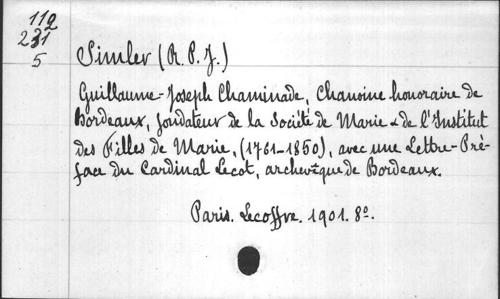 112
231
5
Simler (R. P. J.)
Guillaume-Joseph Chaminade, Chanoine honoraire de
Bordeaux, fondateur de la Société de Marie & de l'Institut
des Filles de Marie, (1761-1850), avec une Lettre-Pré-
face du Cardinal Lecot, archevêque de Bordeaux.
Paris. Lecoffre. 1901. 8º.